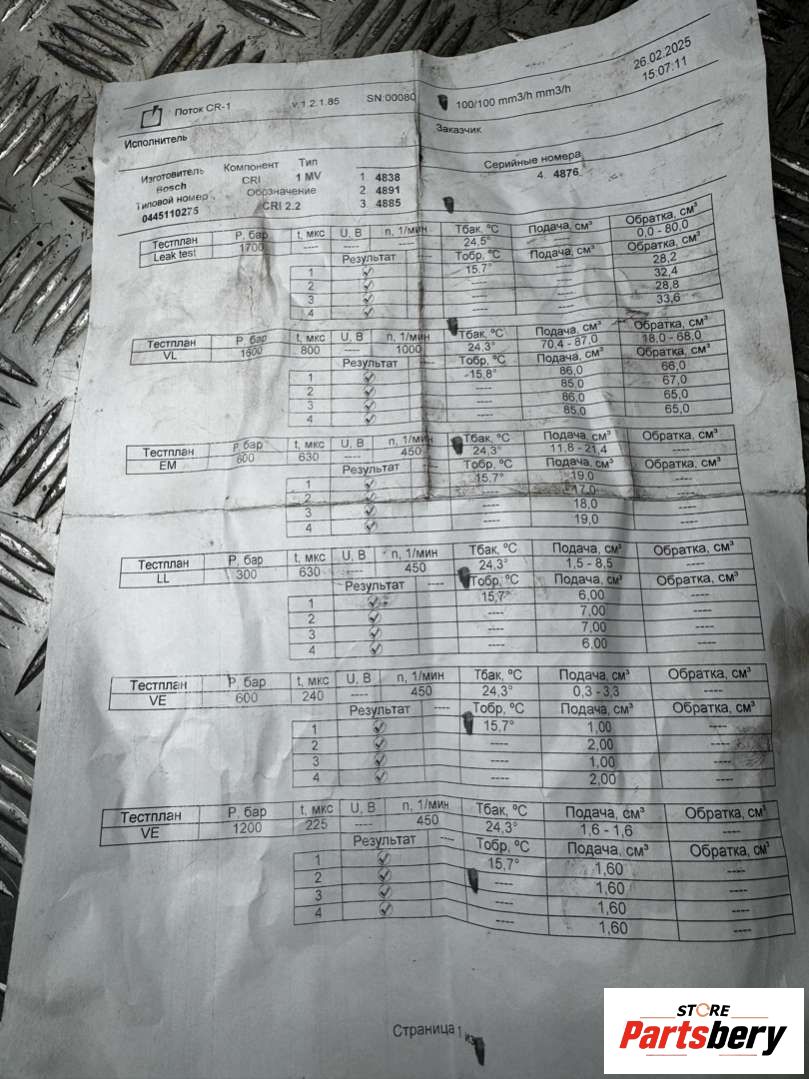 Поток CR-1 v.1.2.1.85 SN:00080 100/100 mm3/h mm3/h 26.02.2025
15:07:11
Исполнитель Заказчик
Изготовитель Компонент Тип Серийные номера
Bosch CRI 1 MV 1 4838 4 4876
Типовой номер Обозначение 2 4891
0445110275 CRI 2.2 3 4885
Тестплан P, бар t, мкс U, В n, 1/мин Тбак, ºC Подача, см³ Обратка, см³
Leak test 1700 ---- ---- ---- 24,5° ---- 0,0 - 80,0
Результат Тобр, ºC Подача, см³ Обратка, см³
1 15.7° ---- 28,2
2 ---- ---- 32,4
3 ---- ---- 28,8
4 ---- ---- 33,6
Тестплан P, бар t, мкс U, В n, 1/мин Тбак, ºC Подача, см³ Обратка, см³
VL 1600 800 ---- 1000 24,3° 70,4 - 87,0 18,0 - 68,0
Результат ---- Тобр, ºC Подача, см³ Обратка, см³
1 15,8° 86,0 66,0
2 ---- 85,0 67,0
3 ---- 86,0 65,0
4 ---- 85,0 65,0
Тестплан P, бар t, мкс U, В n, 1/мин Тбак, ºC Подача, см³ Обратка, см³
EM 600 630 ---- 450 24,3° 11,8 - 21,4 ----
Результат Тобр, ºC Подача, см³ Обратка, см³
1 15,7° 19,0 ----
2 ---- 17,0 ----
3 ---- 18,0 ----
4 ---- 19,0 ----
Тестплан P, бар t, мкс U, В n, 1/мин Тбак, ºC Подача, см³ Обратка, см³
LL 300 630 ---- 450 24,3° 1,5 - 8,5 ----
Результат ---- Тобр, ºC Подача, см³ Обратка, см³
1 15,7° 6,00 ----
2 ---- 7,00 ----
3 ---- 7,00 ----
4 ---- 6,00 ----
Тестплан P, бар t, мкс U, В n, 1/мин Тбак, ºC Подача, см³ Обратка, см³
VE 600 240 ---- 450 24,3° 0,3 - 3,3 ----
Результат ---- Тобр, ºC Подача, см³ Обратка, см³
1 15,7° 1,00 ----
2 ---- 2,00 ----
3 ---- 1,00 ----
4 ---- 2,00 ----
Тестплан P, бар t, мкс U, В n, 1/мин Тбак, ºC Подача, см³ Обратка, см³
VE 1200 225 ---- 450 24,3° 1,6 - 1,6 ----
Результат ---- Тобр, ºC Подача, см³ Обратка, см³
1 15,7° 1,60 ----
2 ---- 1,60 ----
3 ---- 1,60 ----
4 ---- 1,60 ----
Страница 1 из
STORE
Partsbery